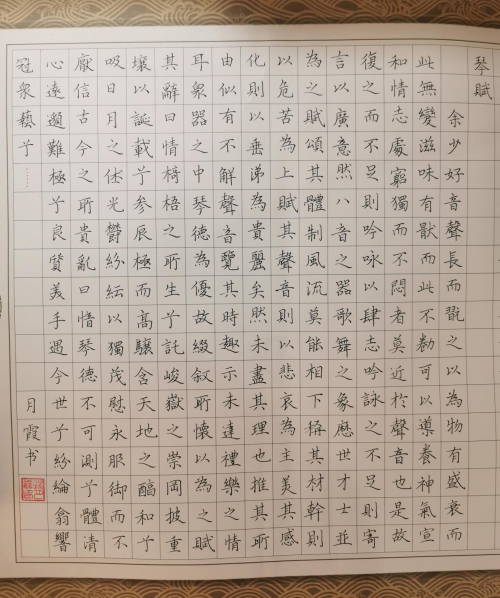 琴賦
余少好音聲長而翫之以為物有盛衰而
此無變滋味有猒而此不勌可以導養神氣宣
和情志處窮獨而不悶者莫近於聲音也是故
復之而不足則吟咏以肆志吟詠之不足則寄
言以廣意然八音之器歌舞之象歷世才士並
為之賦頌其體制風流莫能相下稱其材幹則
以危苦為上賦其聲音則以悲哀為主美其感
化則以垂涕為貴麗矣然未盡其理也推其所
由似有不解聲音覽其時趣示未達禮樂之情
耳衆器之中琴德為優故綴叙所懷以為之賦
其辭曰情椅梧之所生兮託峻嶽之崇岡披重
壤以誕載兮參辰極而高驤含天地之醕和兮
吸日月之休光鬱紛紜以獨茂慰永服御而不
厭信古今之所貴亂曰愔琴德不可測兮體清
心遠邈難極兮良質美手遇今世兮紛綸翕響
冠衆藝兮……
月霞书